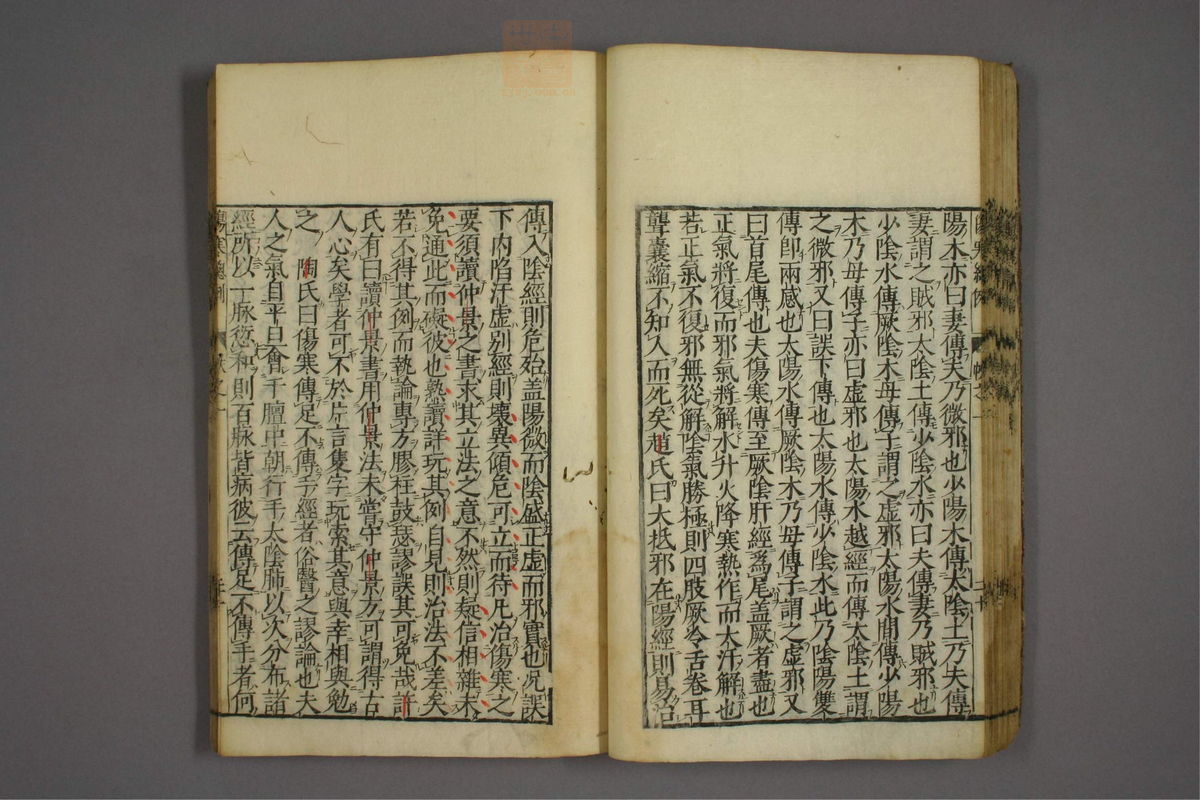 陽木亦曰妻傳夫乃微邪也少陽木傳太陰土乃夫傳
妻謂之賊邪太陰土傳少陰水亦曰夫傳妻乃賊邪也
少陰水傳厥陰木母傳子謂之虛邪太陽水間傳少陽
木乃母傳子亦曰虛邪也太陽水越經而傳太陰土謂
之微邪又曰誤下傳也太陽水傳少陰水此乃陰陽雙
傳即兩感也太陽水傳厥陰木乃母傳子謂之虛邪又
曰首尾傳也夫傷寒傳至厥陰肝經爲尾盖厥者盡也
正氣將復而邪氣將解水升火降寒熱作而大汗解也
若正氣不復邪無從解陰氣勝極則四肢厥冷舌卷耳
聾囊縮不知人而死矣趙氏曰大抵邪在陽經則易治
傳入陰經則危殆盖陽微而陰盛正虛而邪實也况誤
下内陷汗虛别經則壞異傾危可立而待凡治傷寒之
要須讀仲景之書求其立法之意不然則疑信相雜未
免通此而礙彼也熟讀詳玩其例自見則治法不差矣
若不得其例而執論專方膠柱鼓瑟謬誤其可免哉許
氏有曰讀仲景書用仲景法未嘗守仲景方可謂得古
人心矣學者可不於片言隻字玩索其意與幸相與勉
之　陶氏曰傷寒傳足不傳手經者俗醫之謬論也夫
人之氣自平旦會于膻中朝行手太陰肺以次分布諸
經所以一脉愆和則百脉皆病彼云傳足不傳手者何